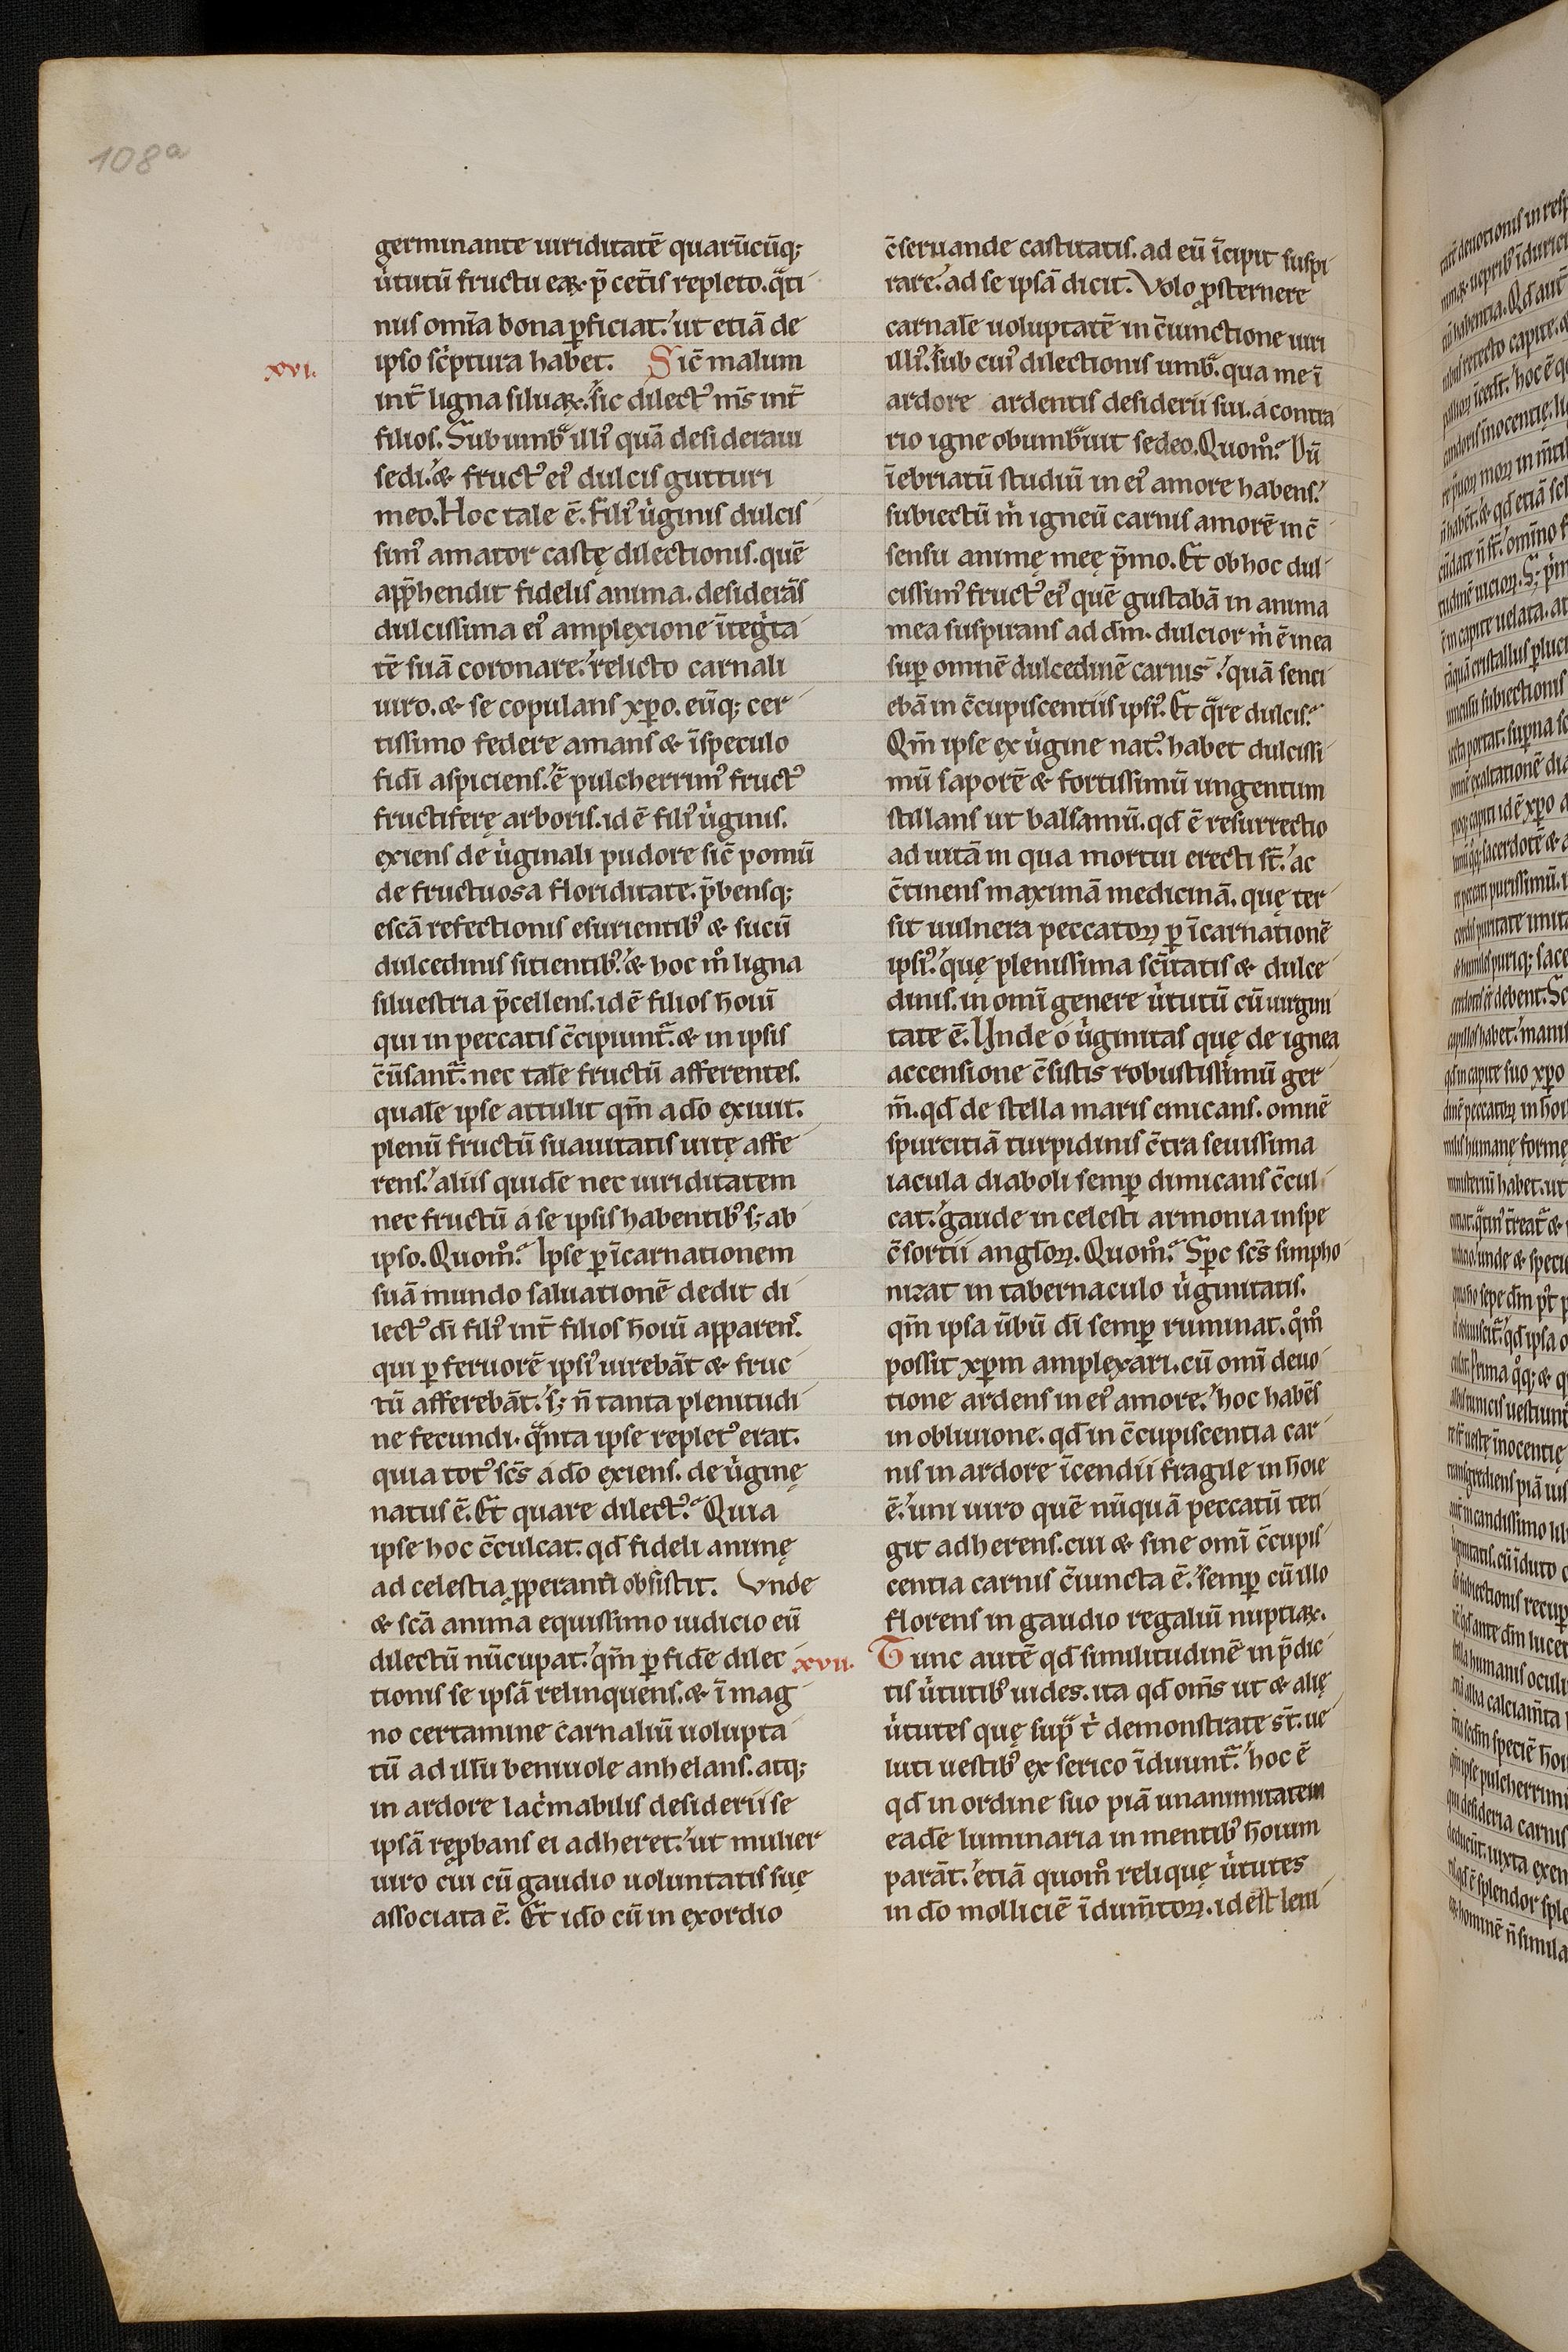 108a
germinante uiriditatē quarūcūq;
u̍tutū fructu eaꝝ p̄ cet̄is repleto. qͣti
nus om̄ia bona ꝑficiat.ʼ ut etiā de
xvi.
ipso sc̍ptura habet. Sic̄ malum
int̄ ligna siluaꝝ.ʼ sic dilectꝰ m̄s int̄
filios. Sub umbͣ illiꝰ quā desideraui
sedi.ʼ & fructꝰ eiꝰ dulcis gutturi
meo. Hoc tale ē. Filiꝰ u̍ginis dulcis
simꝰ amator castę dilectionis. quē
app̄hendit fidelis anima. desiderās
dulcissima eiꝰ amplexione īteg̍ta
tē suā coronare.ʼ relicto carnali
uiro. & se copulans xp̄o. eūq; cer
tissimo federe amans & ī speculo
fidi aspiciens.ʼ ē pulcherrimꝰ fructꝰ
fructiferę arboris. id ē filiꝰ u̍ginis.
exiens de u̍ginali pudore sic̄ pomū
de fructuosa floriditate. p̄bensq;
escā refectionis esurientibꝰ & sucū
dulcedinis sitientibꝰ.ʼ & hoc mͦ ligna
siluestria p̄cellens. id ē filios hoiū
qui in peccatis c̄cipiunt̄. & in ipsis
c̄u̍sant̄. nec tale fructū afferentes.
quale ipse attulit qm̄ a dō exiuit.
plenū fructū suauitatis uitę affe
rens.ʼ aliis quidē nec uiriditatem
nec fructū a se ipsis habentibꝰ s; ab
ipso. Quomͦ? Ipse ꝑ īcarnationem
suā mundo saluationē dedit di
lectꝰ di filiꝰ int̄ filios hoiū apparens.
qui ꝑ feruorē ipsiꝰ uirebāt & fruc
tū afferebāt.ʼ s; n̄ tanta plenitudi
ne fecundi. qͣnta ipse repletꝰ erat.
quia totꝰ sc̄s a dō exiens. de u̍ginę
natus ē. Et quare dilectꝰ? Quia
ipse hoc c̄culcat. qd̄ fideli animę
ad celestia ꝓperanti obsistit. Vnde
& sc̄a anima equissimo iudicio eū
dilectū nūcupat.ʼ qm̄ ꝑ fidē dilec
tionis se ipsā relinquens. & ī mag
no certamine carnaliū uolupta
tū ad illū beniuole anhelans. atq;
in ardore lac̍mabilis desiderii se
ipsā reꝓbans ei adheret.ʼ ut mulier
uiro cui cū gaudio uoluntatis suę
associata ē. Et idō cū in exordio
c̄seruande castitatis. ad eū īcipit suspi
rare.ʼ ad se ipsā dicit. Volo ꝓsternere
carnalē uoluptatē in c̄iunctione uiri
illiꝰ.ʼ sub cuiꝰ dilectionis umbͣ. qua me ī
ardore ardentis desiderii sui. a contra
rio igne obumbͣuit sedeo. Quomͦ? Dū
īebriatū studiū in eiꝰ amore habens.ʼ
subiectū m̍ igneū carnis amorē in c̄
sensu animę meę p̍mo. Et ob hoc dul
cissimꝰ fructꝰ eiꝰ quē gustabā in anima
mea suspirans ad dm̄. dulcior m̍ ē mea
suꝑ omnē dulcedinē carnis.ʼ quā senci
ebā in c̄cupiscentiis ipsiꝰ. Et qͣre dulcis?
Qm̄ ipse ex u̍gine natꝰ.ʼ habet dulcissi
mū saporē & fortissimū ungentum
stillans ut balsamū. qd̄ ē resurrectio
ad uitā in qua mortui erecti st̄.ʼ ac
c̄tinens maximā medicinā. quę ter
sit uulnera peccatoꝝ ꝑ īcarnationē
ipsiꝰ.ʼ quę plenissima sc̄itatis & dulce
dinis. in omi genere u̍tutū cū uirgini
tate ē. Unde o u̍ginitas quę de ignea
accensione c̄sistis robustissimū ger
m̄. qd̄ de stella maris emicans. omnē
spurcitiā turpidinis c̄tra seuissima
iacula diaboli semꝑ dimicans c̄cul
cat.ʼ gaude in celesti armonia in spe
c̄sortii angloꝝ. Quomͦ? Spc sc̄s simpho
nizat in tabernaculo u̍ginitatis.
qm̄ ipsa u̍bū di semꝑ ruminat. qͦmͦ
possit xp̄m amplexari. cū omi deuo
tione ardens in eiꝰ amore.ʼ hoc habēs
in obliuione. qd̄ in c̄cupiscentia car
nis in ardore īcendii fragile in hoie
ē.ʼ uni uiro quē nūquā peccatū teti
git adherens. cui & sine omi c̄cupis
centia carnis c̄iuncta ē.ʼ semꝑ cū illo
florens in gaudio regaliū nuptiaꝝ.
xvii.
Tunc autē qd̄ similitudinē in p̄dic
tis u̍tutibꝰ uides. ita qd̄ om̄s ut & alię
u̍tutes quę supͣ t̍ demonstrate st̄. ue
luti uestibꝰ ex serico īduunt̄.ʼ hoc ē
qd̄ in ordine suo piā unanimitatem
eadē luminaria in mentibꝰ hoium
parāt.ʼ etiā quomͦ reliquę u̍tutes
in dō molliciē īdum̄toꝝ. id est leni